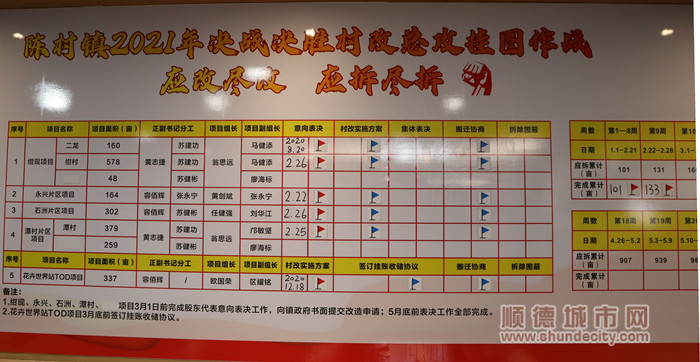 陈村镇2021年决战决胜村改总攻挂图作战
应改尽改 应拆尽拆
序号 项目名称 项目面积（亩） 正副书记分工 项目组长 项目副组长 意向表决 村改实施方案 集体表决 搬迁协商 拆除围蔽
1 绀现项目 二龙 160 黄志捷 苏建功 翁思远 马健添 2020 8.20
绀村 578 苏建功 马健添 2.26
48 苏健彬 廖海标
2 永兴片区项目 164 容佰辉 张永宁 黄剑斌 张永宁 2.22
3 石洲片区项目 302 容佰辉 苏健彬 任健强 刘华江 2.26
4 潭村片区项目 潭村 379 黄志捷 苏建功 翁思远 邝敏坚 2.25
259 苏健彬 廖海标
序号 项目名称 项目面积（亩） 正副书记分工 项目组长 项目副组长 村改实施方案 签订挂账收储协议 搬迁协商 拆除围蔽
5 花卉世界站TOD项目 337 容佰辉 / 欧国荣 区耀铭 2020 12.18
备注：
1.绀现、永兴、石洲、潭村、 项目3月1日前完成股东代表意向表决工作，向镇政府书面提交改造申请；5月底前表决工作全部完成。
2.花卉世界站TOD项目3月底前签订挂账收储协议。
周数 第1—8周 第9周 第10
日期 1.1-2.21 2.22-2.28 3.1-
应拆累计（亩） 101 131 16
完成累计（亩） 101 133
周数 第18周 第19周 第2
日期 4.26-5.2 5.3-5.9 5.10-
应拆累计（亩） 907 939 96
完成累计（亩）
顺德城市网
www.shundecity.com